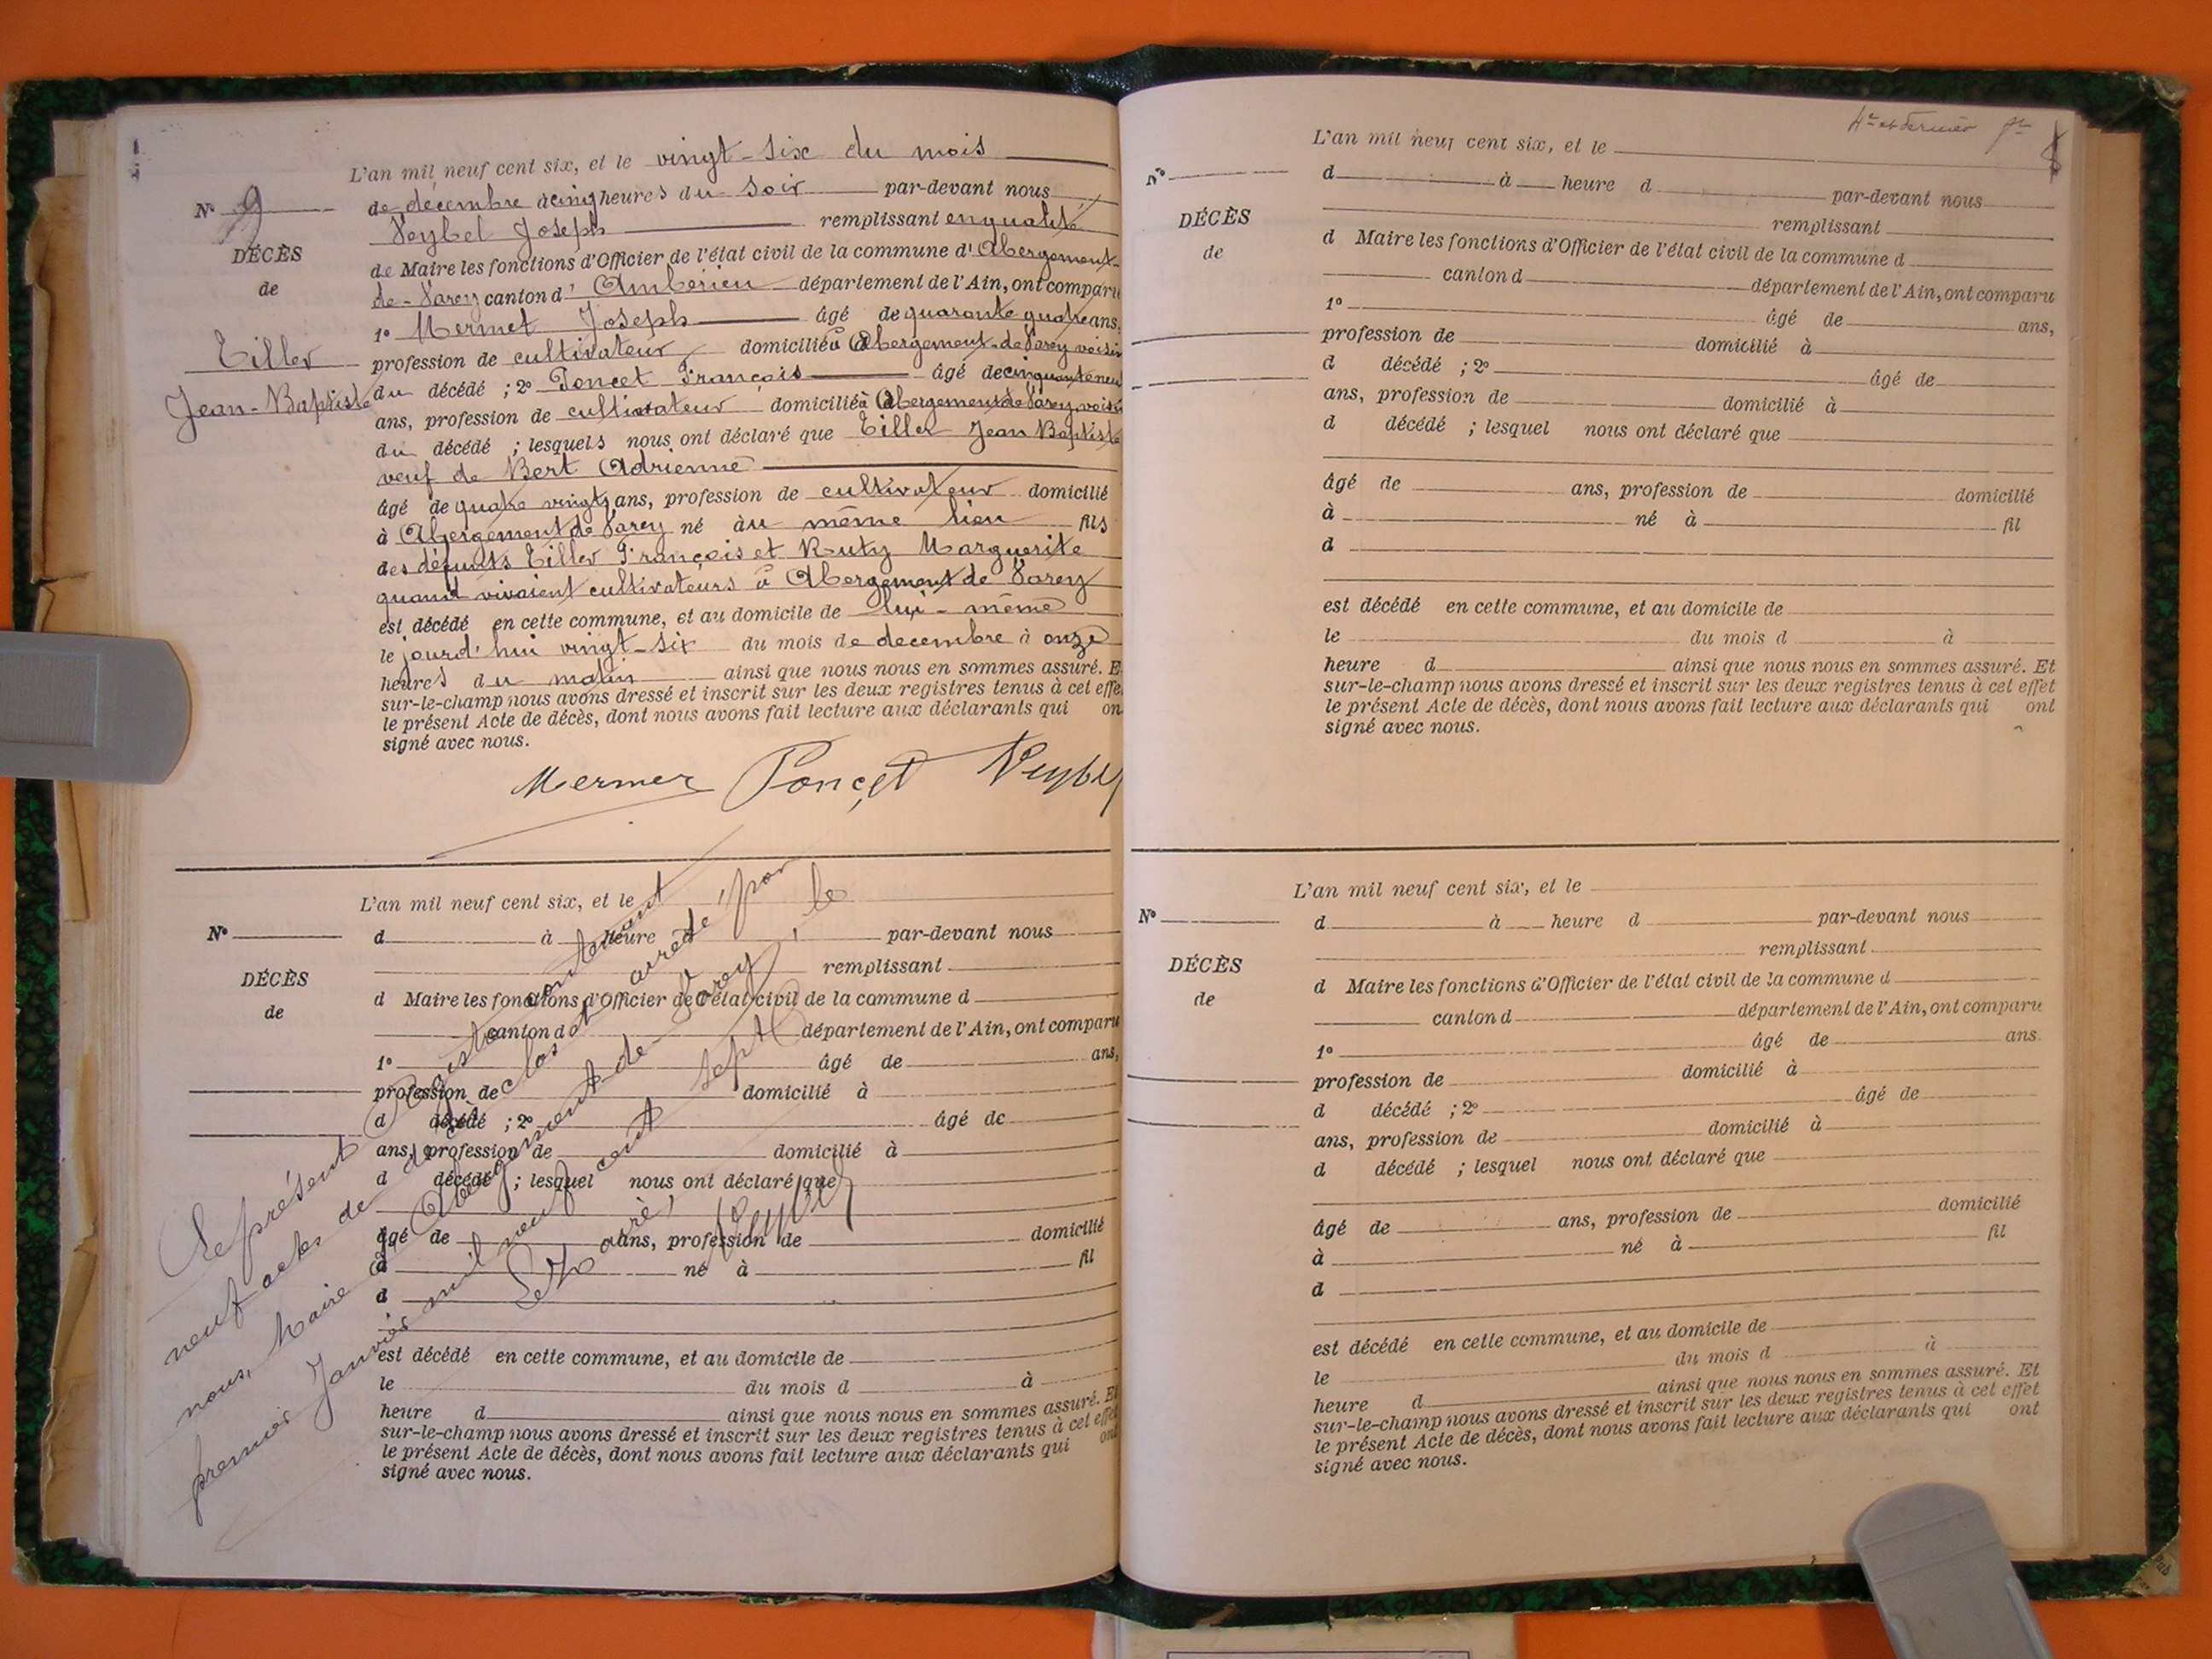 L'an mil neuf cent six, et le vingt-six du mois
de décembre à cinq heures du soir par-devant nous
Veybel Joseph remplissant en qualité
de Maire les fonctions d'Officier de l'état civil de la commune d'Abergement-
de-Varey canton d'Ambérieu département de l'Ain, ont comparu
1º Mermet Joseph âgé de quarante quatre ans,
profession de cultivateur domicilié à Abergement-de-Varey voisin
du décédé ; 2º Poncet François âgé de cinquante neuf
ans, profession de cultivateur domicilié à Abergement de Varey, voisin
du décédé ; lesquels nous ont déclaré que Tiller Jean Baptiste
veuf de Bert Adrienne
âgé de quatre vingts ans, profession de cultivateur domicilié
à Abergement de Varey né au même lieu fils
des défunts Tiller François et Ruty Marguerite
quand vivaient cultivateurs à Abergement de Varey
est décédé en cette commune, et au domicile de lui-même
le jourd'hui vingt-six du mois de decembre à onze
heures du matin ainsi que nous nous en sommes assuré. E
sur-le-champ nous avons dressé et inscrit sur les deux registres tenus à cet effe
le présent Acte de décès, dont nous avons fait lecture aux déclarants qui on
signé avec nous.
Nº 9
DÉCÈS
de
Tiller
Jean-Baptiste
Mermet Poncet Veybel
L'an mil neuf cent six, et le
d à heure d par-devant nous
remplissant
d Maire les fonctions d'Officier de l'état civil de la commune d
canton d département de l'Ain, ont comparu
1º âgé de ans,
profession de domicilié à
d décédé ; 2º âgé de
ans, profession de domicilié à
d décédé ; lesquel nous ont déclaré que
âgé de ans, profession de domicilié
à né à fil
d
est décédé en cette commune, et au domicile de
le du mois d à
heure d ainsi que nous nous en sommes assuré. Et
sur-le-champ nous avons dressé et inscrit sur les deux registres tenus à cet effet
le présent Acte de décès, dont nous avons fait lecture aux déclarants qui ont
signé avec nous.
Nº
DÉCÈS
de
Le présent Registre contenant
neuf actes de décès clos et arrêté par
nous, Maire d'Abergement-de-Varey, le
premier Janvier mil neuf cent sept
Le Maire,
Veybel
4e et dernier
L'an mil neuf cent six, et le
d à heure d par-devant nous
remplissant
d Maire les fonctions d'Officier de l'état civil de la commune d
canton d département de l'Ain, ont comparu
1º âgé de ans,
profession de domicilié à
d décédé ; 2º âgé de
ans, profession de domicilié à
d décédé ; lesquel nous ont déclaré que
âgé de ans, profession de domicilié
à né à fil
d
est décédé en cette commune, et au domicile de
le du mois d à
heure d ainsi que nous nous en sommes assuré. Et
sur-le-champ nous avons dressé et inscrit sur les deux registres tenus à cet effet
le présent Acte de décès, dont nous avons fait lecture aux déclarants qui ont
signé avec nous.
Nº
DÉCÈS
de
L'an mil neuf cent six, et le
d à heure d par-devant nous
remplissant
d Maire les fonctions d'Officier de l'état civil de la commune d
canton d département de l'Ain, ont comparu
1º âgé de ans.
profession de domicilié à
d décédé ; 2º âgé de
ans, profession de domicilié à
d décédé ; lesquel nous ont déclaré que
âgé de ans, profession de domicilié
à né à fil
d
est décédé en cette commune, et au domicile de
le du mois d à
heure d ainsi que nous nous en sommes assuré. Et
sur-le-champ nous avons dressé et inscrit sur les deux registres tenus à cet effet
le présent Acte de décès, dont nous avons fait lecture aux déclarants qui ont
signé avec nous.
Nº
DÉCÈS
de